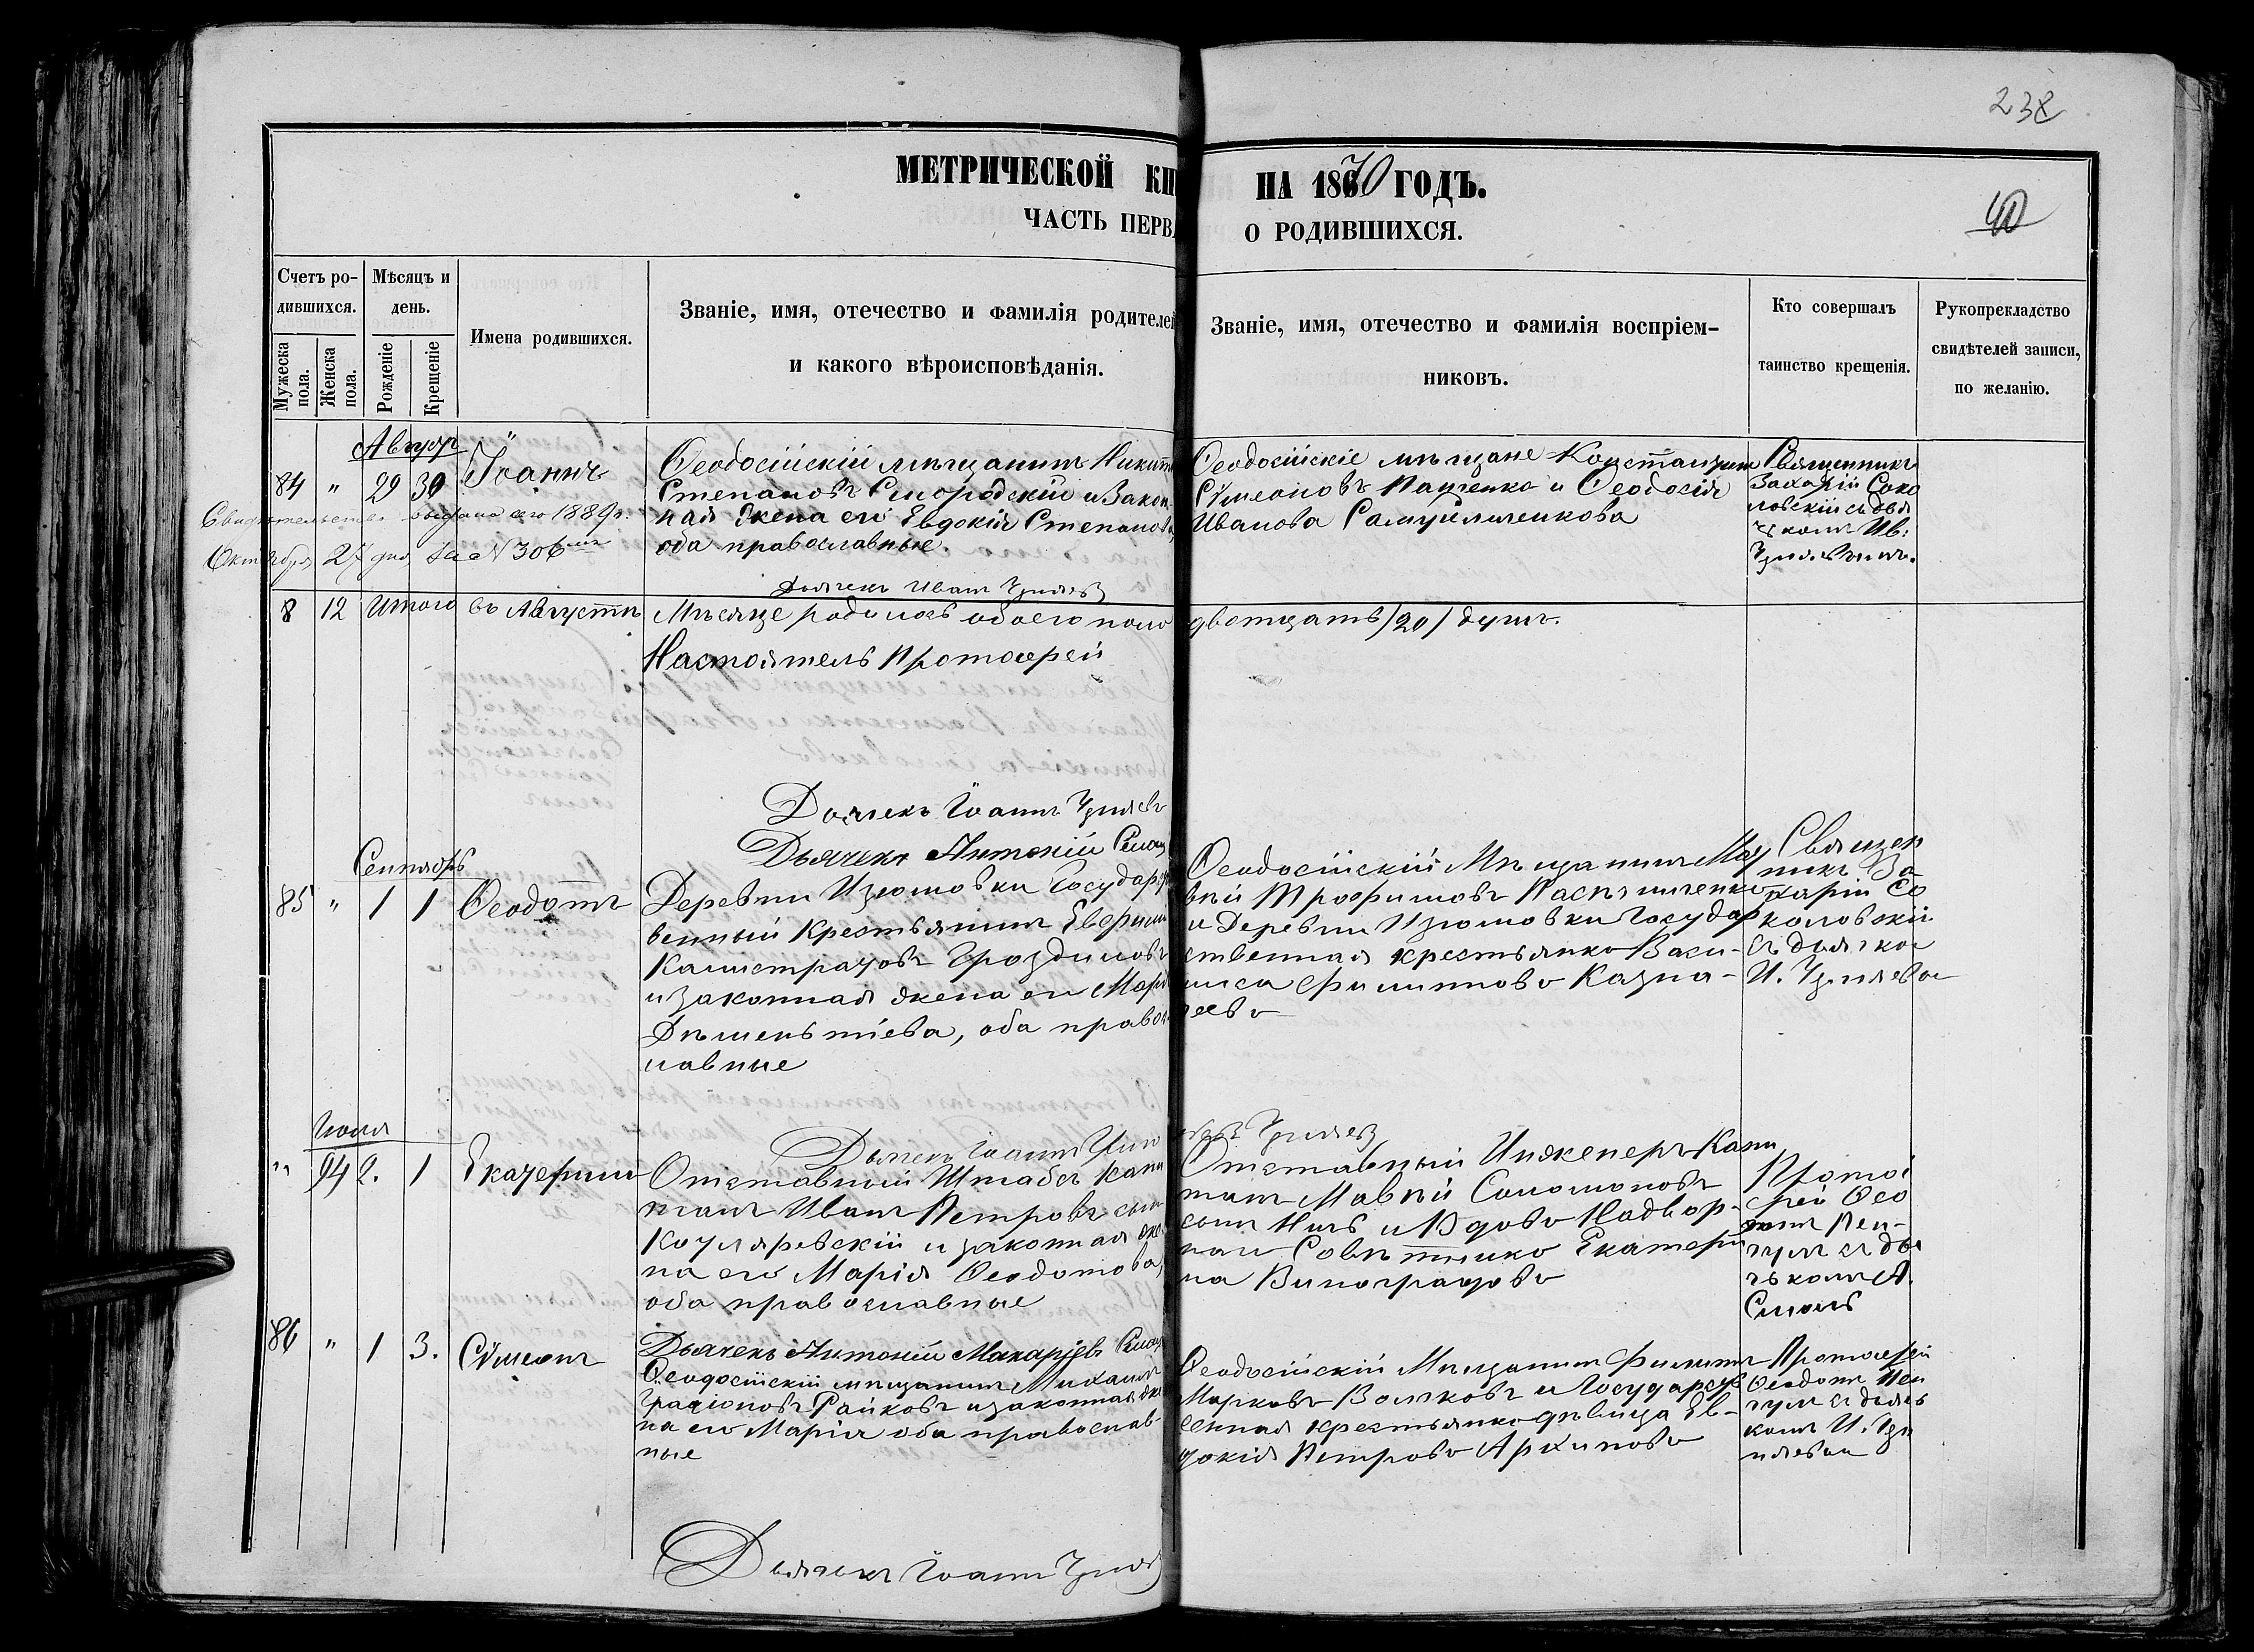 238
МЕТРИЧЕСКОЙ КН НА 1870 ГОДЪ.
ЧАСТЬ ПЕРВ О РОДИВШИХСЯ.
40
Счетъ ро-
дившихся.
Мужеска пола.
Женска пола.
Мѣсяцъ и
день.
Рожденіе
Крещеніе
Имена родившихся.
Званіе, имя, отечество и фамилія родителей
и какого вѣроисповѣданія.
Званіе, имя, отечество и фамилія воспріем-
никовъ.
Кто совершалъ
таинство крещенія.
Рукоприкладство
свидѣтелей записи,
по желанію.
Август
84 " 29 30 Іоаннъ
Ѳеодосійскій мѣщанинъ Никит
Степановъ Смородскій и закон
ная жена его Евдокія Степанова
оба православные.
Ѳеодосійскіе мѣщане Константин
Сѵмеоновъ Пащенко и Ѳеодосія
Иванова Самуйличенкова
Священникъ
Захарій Соко
ловскій съ дья
чкомъ Ив:
Свидѣтельство выдано 1889г.
Октября 27 дня за N 306
Дьячекъ Иванъ
8 12 Итого въ Августѣ Мѣсяце родилось обоего пола двотцать /20/ душъ.
Настоятель Протоіерей
Дьячекъ Іоаннъ
Дьячекъ Антоній
Сентябрь
85 " 1 1 Ѳеодотъ
Деревни Изюмовки Государст
венный Крестьянинъ
Калистратовъ
и законная жена его Мар
оба право
славные
Ѳеодосійскій Мѣщанинъ Мат
вѣй Трофимовъ
и Деревни Изюмовки Государ
ственная крестьянка Васи-
лиса Филиппова Казна-
чеева
Священ
никъ За
харій Со
коловскій
съ дьячко
И.
Іюля
" 94 2. 1 Екатерина
Дьячекъ Іоаннъ
Отставный Штабсъ Капи
танъ Иванъ Петровъ сын
Котляревскій и законная же
на его Марія Ѳеодотова,
оба православные
Отставный Инженеръ Капи
танъ Матвѣй Соломоновъ
сынъ Ниль и Вдова Надвор-
наи Совѣтника Екатери
на Виноградова
Протоі
рей Ѳео
дотъ
съ дья
чкомъ А.
86 " 1 3. Сѵмеонъ
Дьячекъ Антоній Макаріевъ
Ѳеодосійскій мѣщанинъ Михаилъ
Райковъ и законная же
на его Марія оба православ-
ные
Ѳеодосійскій Мѣщанинъ Филиппъ
Марковъ Волковъ и Государст
венная крестьянка дѣвица Ев-
докія Петрова Архипова
Протоіерей
Ѳеодотъ
съ дьяч
комъ И.
Дьячекъ Іоаннъ